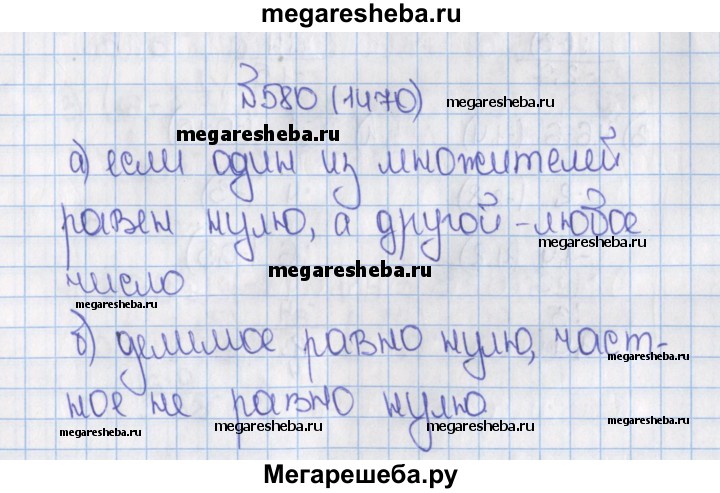 megaresheba.ru
№580 (1470) megaresheba.ru
megaresheba.ru
а) если один из множителей
megaresheba.ru
равен нулю, а другой - любое
megaresheba.ru
megaresheba.ru
число
megaresheba.ru
megaresheba.ru
б) делимое равно нулю, част-
megaresheba.ru
ное не равно нулю
megaresheba.ru megaresheba.ru megaresheba.ru megaresheba.ru
Мегарешеба.ру